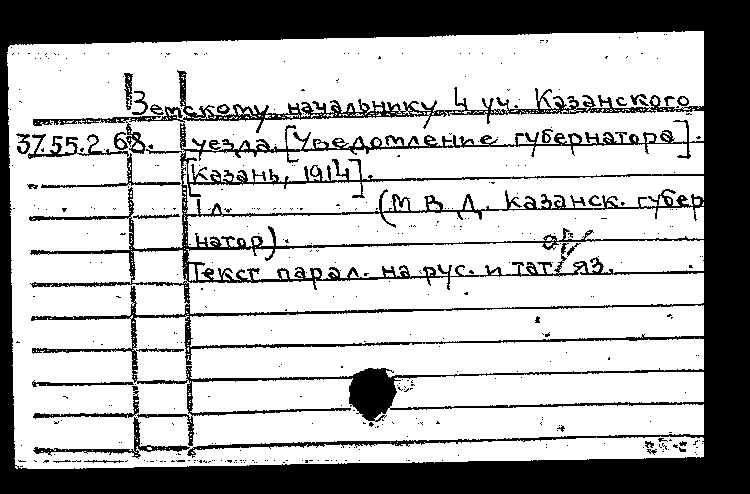 Земскому начальнику 4 уч. Казанского
37.55.2.68. уезда. [Уведомление губернатора].
[Казань, 1914].
1 л. (М В Д. Казанск. губер
натор).
Текст парал. на рус. и тат яз.